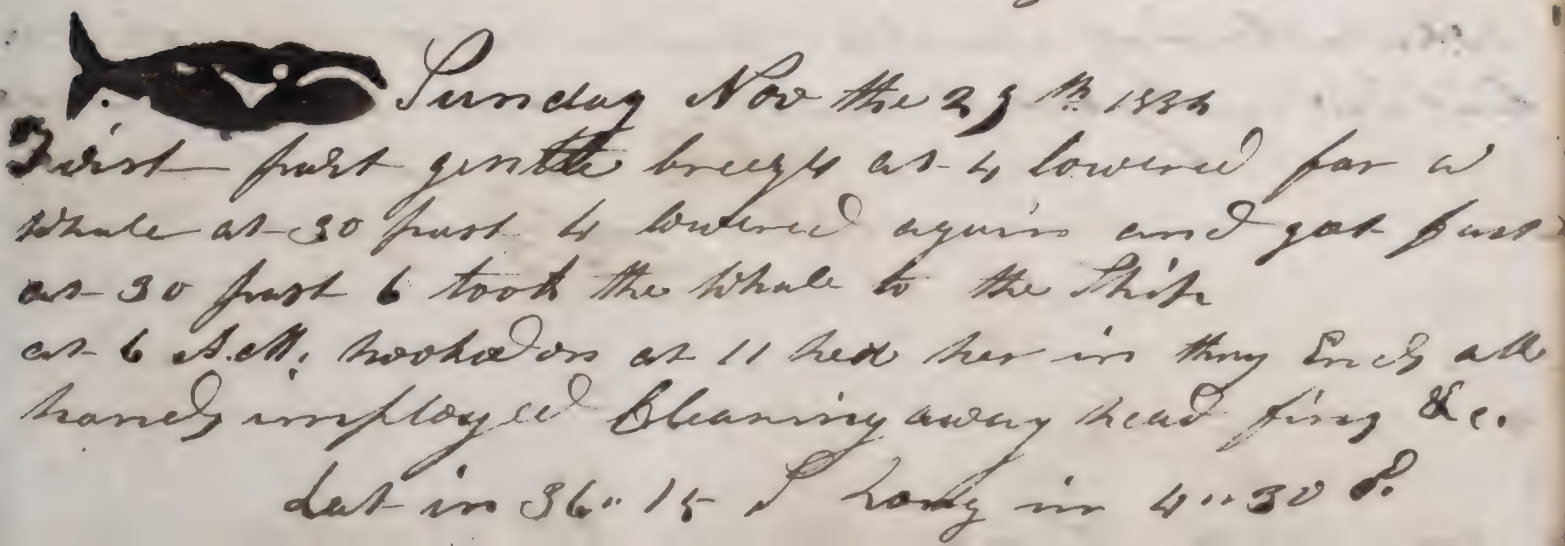 Sunday Nov the 29th 1835
First part gentle breeze at 4 lowered for a
Whale at 30 past 4 lowered again and got fast
at 30 past 6 took the Whale to the Ship
at 6 A.M. hooked on at 11 hed her in Ends all
hands imployed Cleaning away head fins &c.
Lat in 36" 15 S Long in 4" 30 E.